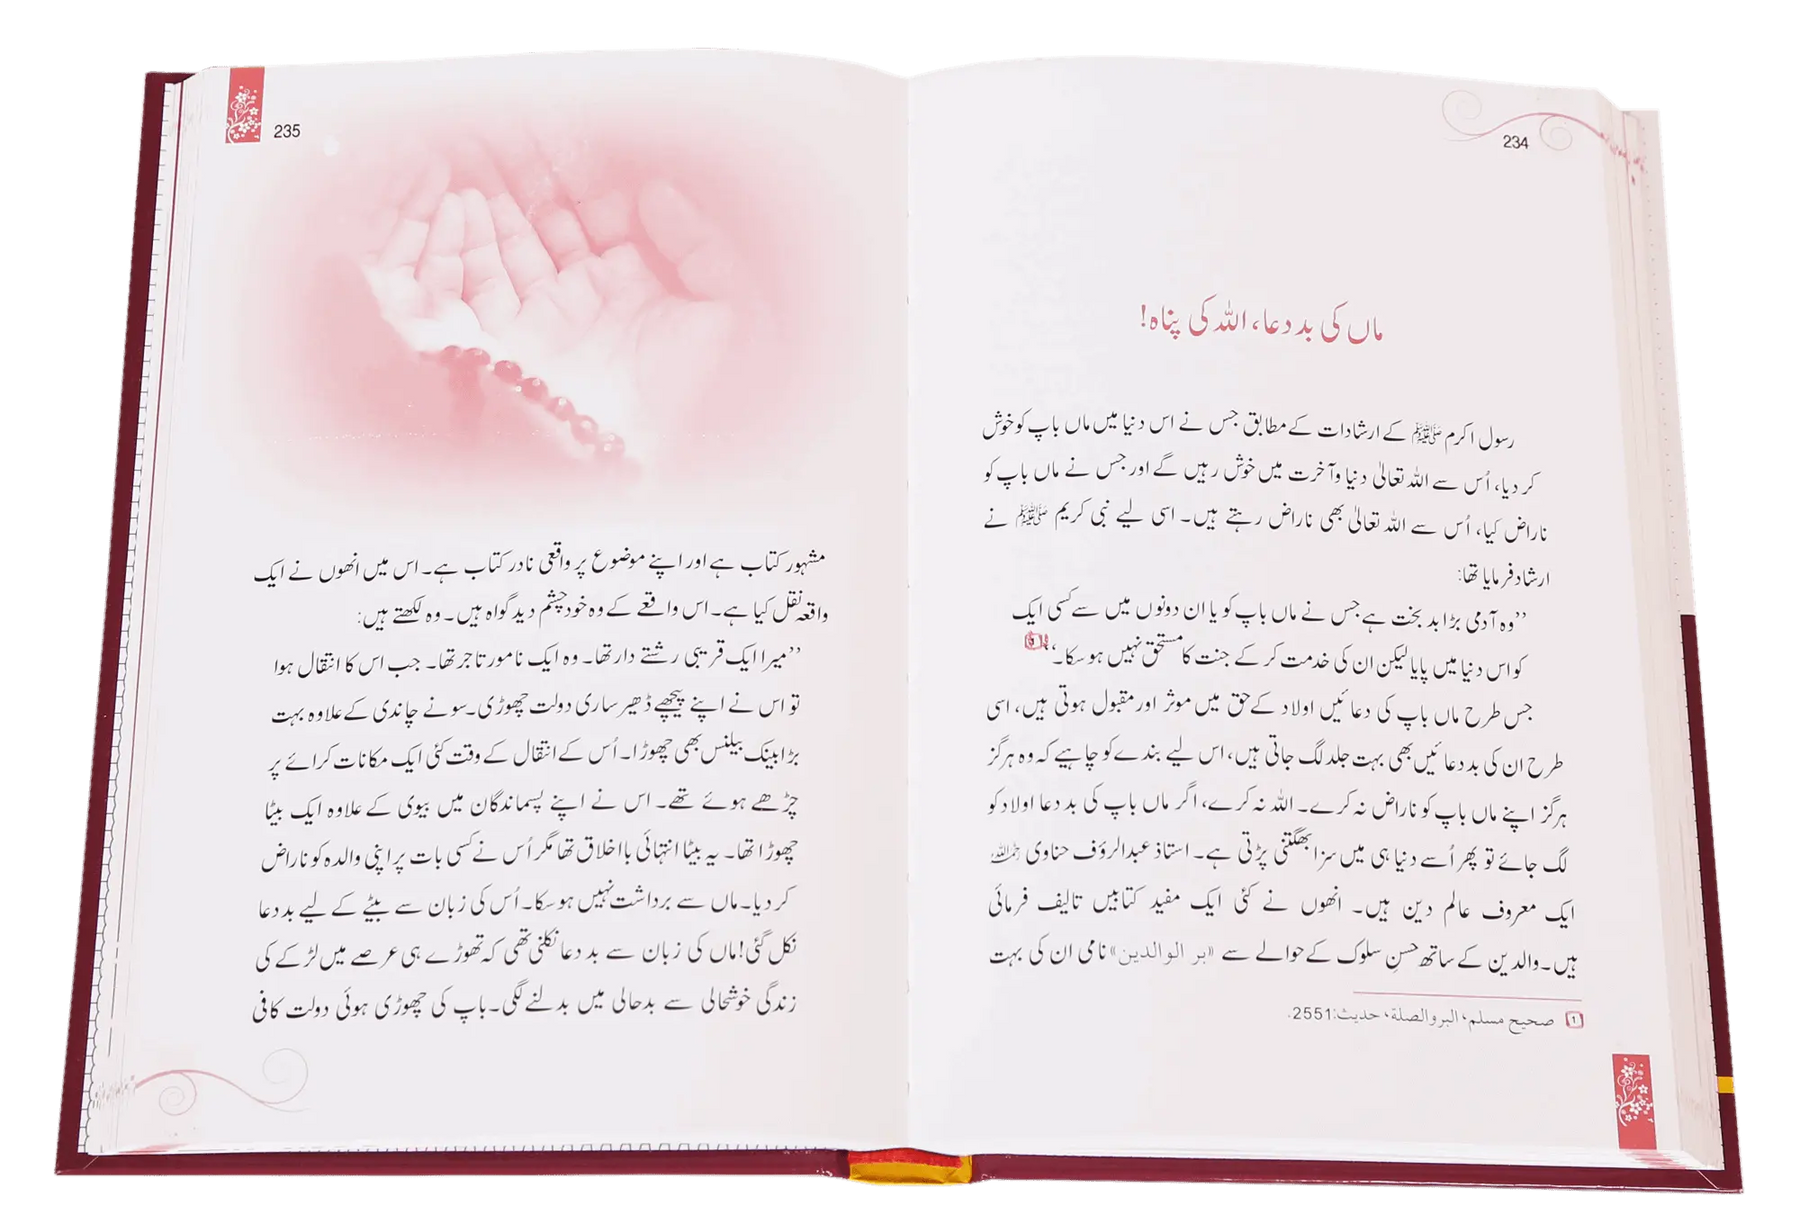 234
ماں کی بد دعا، اللہ کی پناہ!
رسول اکرم ﷺ کے ارشادات کے مطابق جس نے اس دنیا میں ماں باپ کو خوش
کر دیا، اُس سے اللہ تعالیٰ دنیا وآخرت میں خوش رہیں گے اور جس نے ماں باپ کو
ناراض کیا، اُس سے اللہ تعالیٰ بھی ناراض رہتے ہیں۔ اسی لیے نبی کریم ﷺ نے
ارشاد فرمایا تھا:
’’وہ آدمی بڑا بد بخت ہے جس نے ماں باپ کو یا ان دونوں میں سے کسی ایک
کو اس دنیا میں پایا لیکن ان کی خدمت کر کے جنت کا مستحق نہیں ہو سکا۔‘‘
جس طرح ماں باپ کی دعائیں اولاد کے حق میں موثر اور مقبول ہوتی ہیں، اسی
طرح ان کی بد دعائیں بھی بہت جلد لگ جاتی ہیں، اس لیے بندے کو چاہیے کہ وہ ہرگز
ہرگز اپنے ماں باپ کو ناراض نہ کرے۔ اللہ نہ کرے، اگر ماں باپ کی بد دعا اولاد کو
لگ جائے تو پھر اُسے دنیا ہی میں سزا بھگتنی پڑتی ہے۔ استاذ عبدالرؤف حناوی رحمہ اللہ
ایک معروف عالم دین ہیں۔ انھوں نے کئی ایک مفید کتابیں تالیف فرمائی
ہیں۔ والدین کے ساتھ حسنِ سلوک کے حوالے سے «بر الوالدین» نامی ان کی بہت
1 صحیح مسلم، البر والصلة، حدیث: 2551.
235
مشہور کتاب ہے اور اپنے موضوع پر واقعی نادر کتاب ہے۔ اس میں انھوں نے ایک
واقعہ نقل کیا ہے۔ اس واقعے کے وہ خود چشم دید گواہ ہیں۔ وہ لکھتے ہیں:
’’میرا ایک قریبی رشتے دار تھا۔ وہ ایک نامور تاجر تھا۔ جب اس کا انتقال ہوا
تو اس نے اپنے پیچھے ڈھیر ساری دولت چھوڑی۔ سونے چاندی کے علاوہ بہت
بڑا بینک بیلنس بھی چھوڑا۔ اُس کے انتقال کے وقت کئی ایک مکانات کرائے پر
چڑھے ہوئے تھے۔ اس نے اپنے پسماندگان میں بیوی کے علاوہ ایک بیٹا
چھوڑا تھا۔ یہ بیٹا انتہائی بااخلاق تھا مگر اُس نے کسی بات پر اپنی والدہ کو ناراض
کر دیا۔ ماں سے برداشت نہیں ہو سکا۔ اُس کی زبان سے بیٹے کے لیے بد دعا
نکل گئی! ماں کی زبان سے بد دعا نکلنی تھی کہ تھوڑے ہی عرصے میں لڑکے کی
زندگی خوشحالی سے بدحالی میں بدلنے لگی۔ باپ کی چھوڑی ہوئی دولت کافی